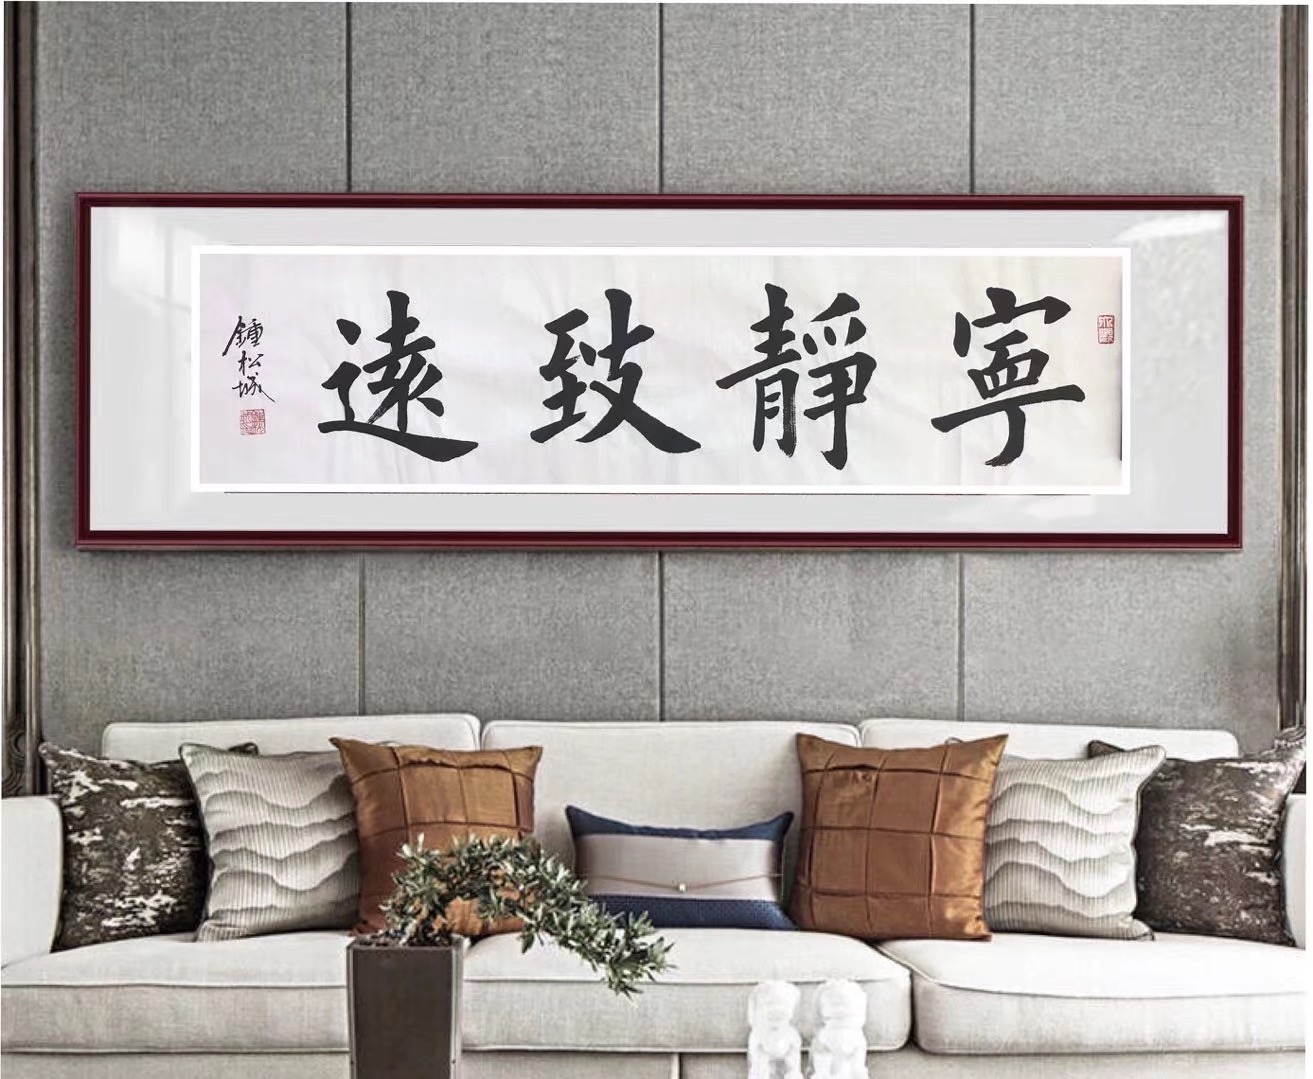 寧靜致遠
鍾松城